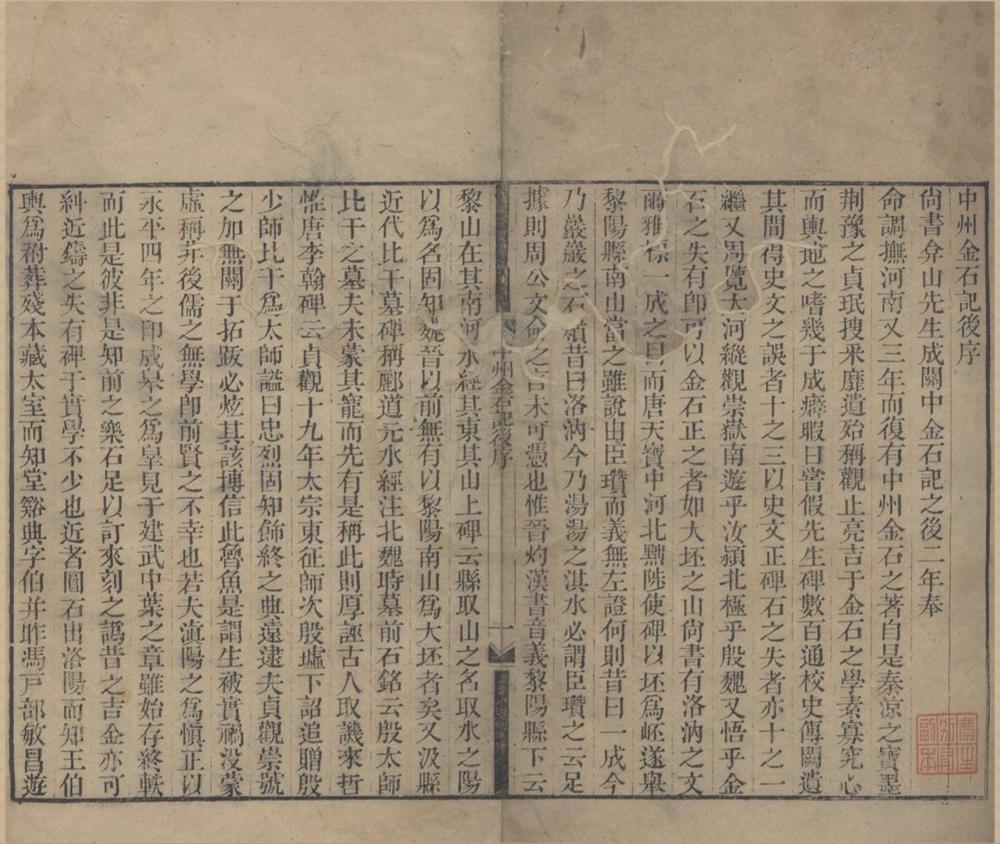 中州金石記後序
尙書弇山先生成關中金石記之後二年奉
命調撫河南又三年而復有中州金石之著自是秦涼之寶墨
荆豫之貞珉搜采靡遺殆稱觀止亮吉于金石之學素寡究心
而輿地之嗜幾于成癖暇日嘗假先生碑數百通校史傳闕遺
其間得史文之誤者十之三以史文正碑石之失者亦十之一
繼又周覽大河縱觀崇嶽南遊乎汝潁北極乎殷魏又悟乎金
石之失有卽可以金石正之者如大丕之山尙書有洛汭之文
爾雅標一成之目而唐天寶中河北黜陟使碑以坯爲岯遂舉
黎陽縣南山當之雖說出臣瓚而義無左證何則昔曰一成今
乃巖巖之石嶺昔曰洛汭今乃湯湯之淇水必謂臣瓚之云足
據則周公文命之言未可憑也惟晉灼漢書音義黎陽縣下云
中州金石記後序
一
黎山在其南河水經其東其山上碑云縣取山之名取水之陽
以爲名固知魏晉以前無有以黎陽南山爲大坯者矣又汲縣
近代比干墓碑稱酈道元水經注北魏時墓前石銘云殷太師
比干之墓夫未蒙其寵而先有是稱此則厚誣古人取譏來哲
惟唐李翰碑云貞觀十九年太宗東征師次殷墟下詔追贈殷
少師比干爲太師謚曰忠烈固知飾終之典遠逮夫貞觀崇號
之加無關于拓跋必炫其該博信此魯魚是謂生被實禍没蒙
虛稱非後儒之無學卽前賢之不幸也若夫滇陽之爲慎正以
永平四年之印成皋之爲皐見于建武中葉之章雖始存終軼
而此是彼非是知前之樂石足以訂來刻之譌昔之吉金亦可
糾近鑄之失有碑于實學不少也近者圓石出洛陽而知王伯
輿爲祔葬殘本藏太室而知堂谿典字伯并昨馮戸部敏昌遊